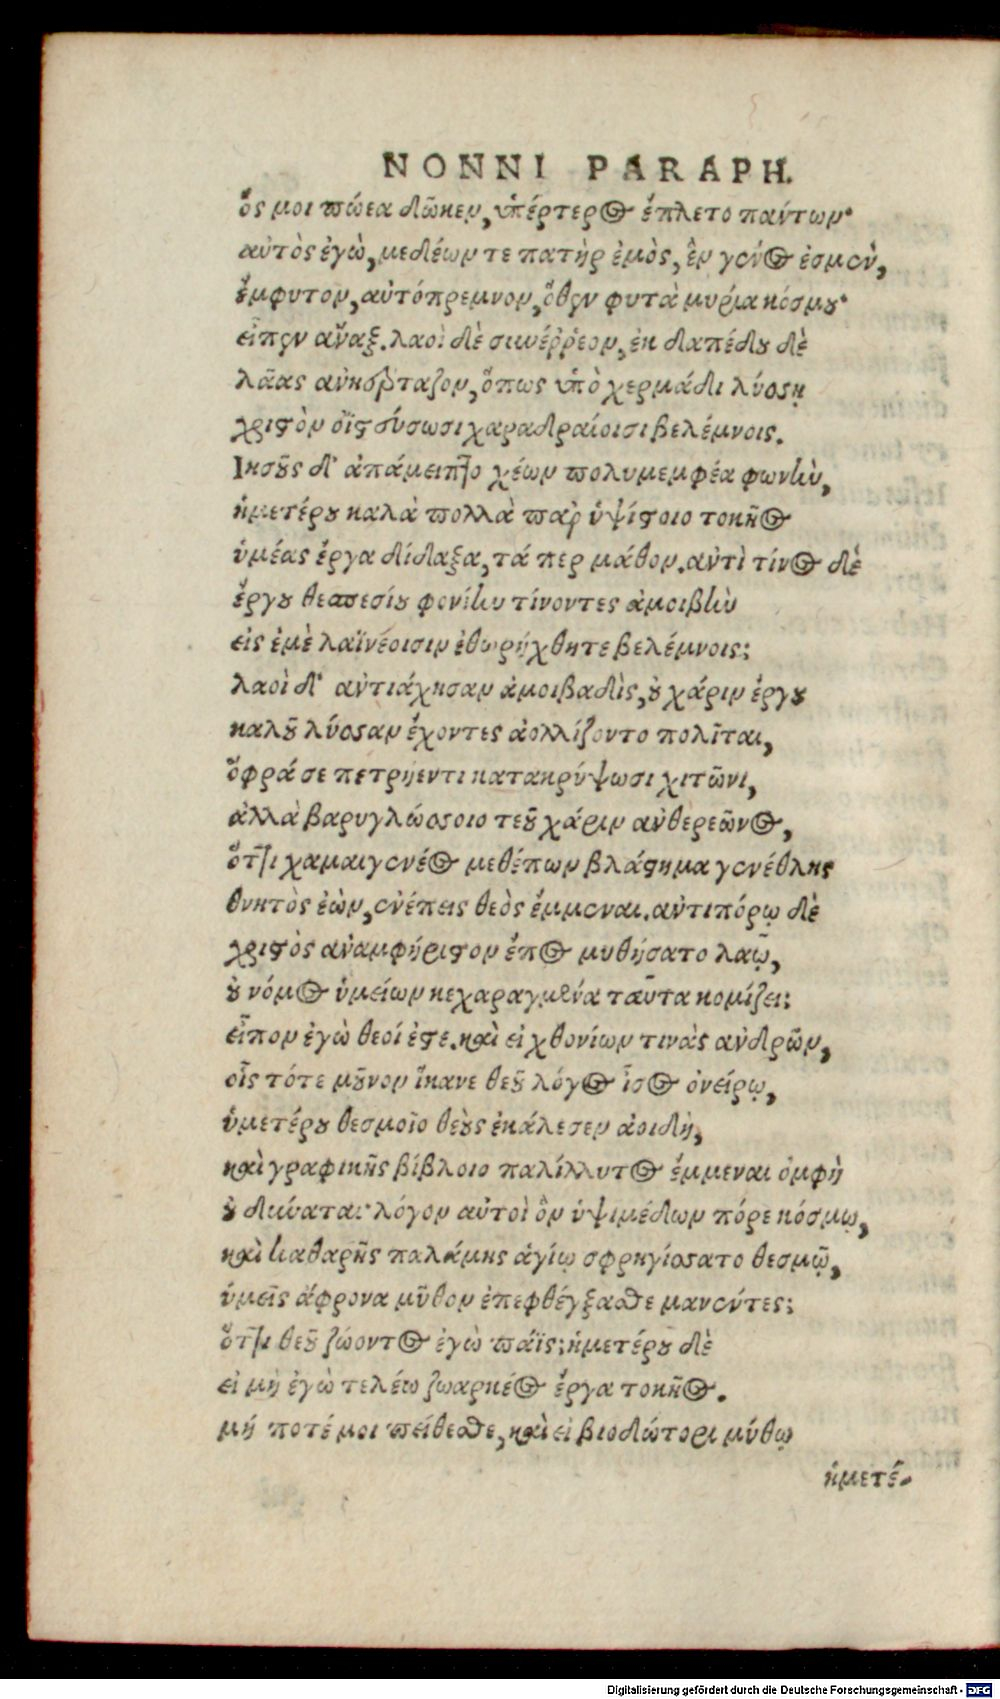 NONNI PARAPH.
ὅς μοι πώεα δῶκεν, ὑπέρτερος ἔπλετο πάντων·
αὐτὸς ἐγὼ, μεδέων τε πατὴρ ἐμὸς, ἓν γένος ἐσμὲν,
ἔμφυτον, αὐτόπρεμνον, ὅθεν φυτὰ μυρία κόσμου·
εἶπεν ἄναξ. λαοὶ δὲ συνέῤῥεον, ἐκ δαπέδου δὲ
λᾶας ἀνηέρταζον, ὅπως ὑπὸ χερμάδι λύσσῃ
χριστὸν ὀϊστεύσωσι χαραδραίοισι βελέμνοις.
Ιησοῦς δ' ἀπάμειπτο χέων πολυμεμφέα φωνὴν,
ἡμετέρου καλὰ πολλὰ παρ' ὑψίστοιο τοκῆος
ὑμέας ἔργα δίδαξα, τά περ μάθον. ἀντὶ τίνος δὲ
ἔργου θεσπεσίου φονίην τίνοντες ἀμοιβὴν
εἰς ἐμὲ λαϊνέοισιν ἐθωρήχθητε βελέμνοις;
λαοὶ δ' ἀντιάχησαν ἀμοιβαδὶς, οὐ χάριν ἔργου
καλοῦ λύσσαν ἔχοντες ἀολλίζοντο πολῖται,
ὄφρά σε πετρήεντι κατακρύψωσι χιτῶνι,
ἀλλὰ βαρυγλώσσοιο τεοῦ χάριν ἀνθερεῶνος,
ὅττι χαμαιγενέος μεθέπων βλάστημα γενέθλης
θνητὸς ἐὼν, ἐνέπεις θεὸς ἔμμεναι. ἀντιπόρῳ δὲ
χριστὸς ἀναμφήριστον ἔπος μυθήσατο λαῷ,
οὐ νόμος ὑμείων κεχαραγμένα ταῦτα κομίζει;
εἶπον ἐγὼ θεοί ἐστε. καὶ εἰ χθονίων τινὰς ἀνδρῶν,
οἷς τότε μοῦνον ἵκανε θεοῦ λόγος ἶσος ὀνείρῳ,
ὑμετέρου θεσμοῖο θεοὺς ἐκάλεσεν ἀοιδὴ,
καὶ γραφικῆς βίβλοιο παλίλλυτος ἔμμεναι ὀμφὴ
οὐ δύναται· λόγον αὐτοὶ ὃν ὑψιμέδων πόρε κόσμῳ,
καὶ καθαρῆς παλάμης ἁγίῳ σφρηγίσσατο θεσμῷ,
ὑμεῖς ἄφρονα μῦθον ἐπεφθέγξασθε μανέντες;
ὅττι θεοῦ ζώοντος ἐγὼ πάϊς; ἡμετέρου δὲ
εἰ μὴ ἐγὼ τελέω ζωαρκέος ἔργα τοκῆος.
μή ποτέ μοι πείθεσθε, καὶ εἰ βιοδώτορι μύθῳ
ἡμετέ-
Digitalisierung gefördert durch die Deutsche Forschungsgemeinschaft - DFG